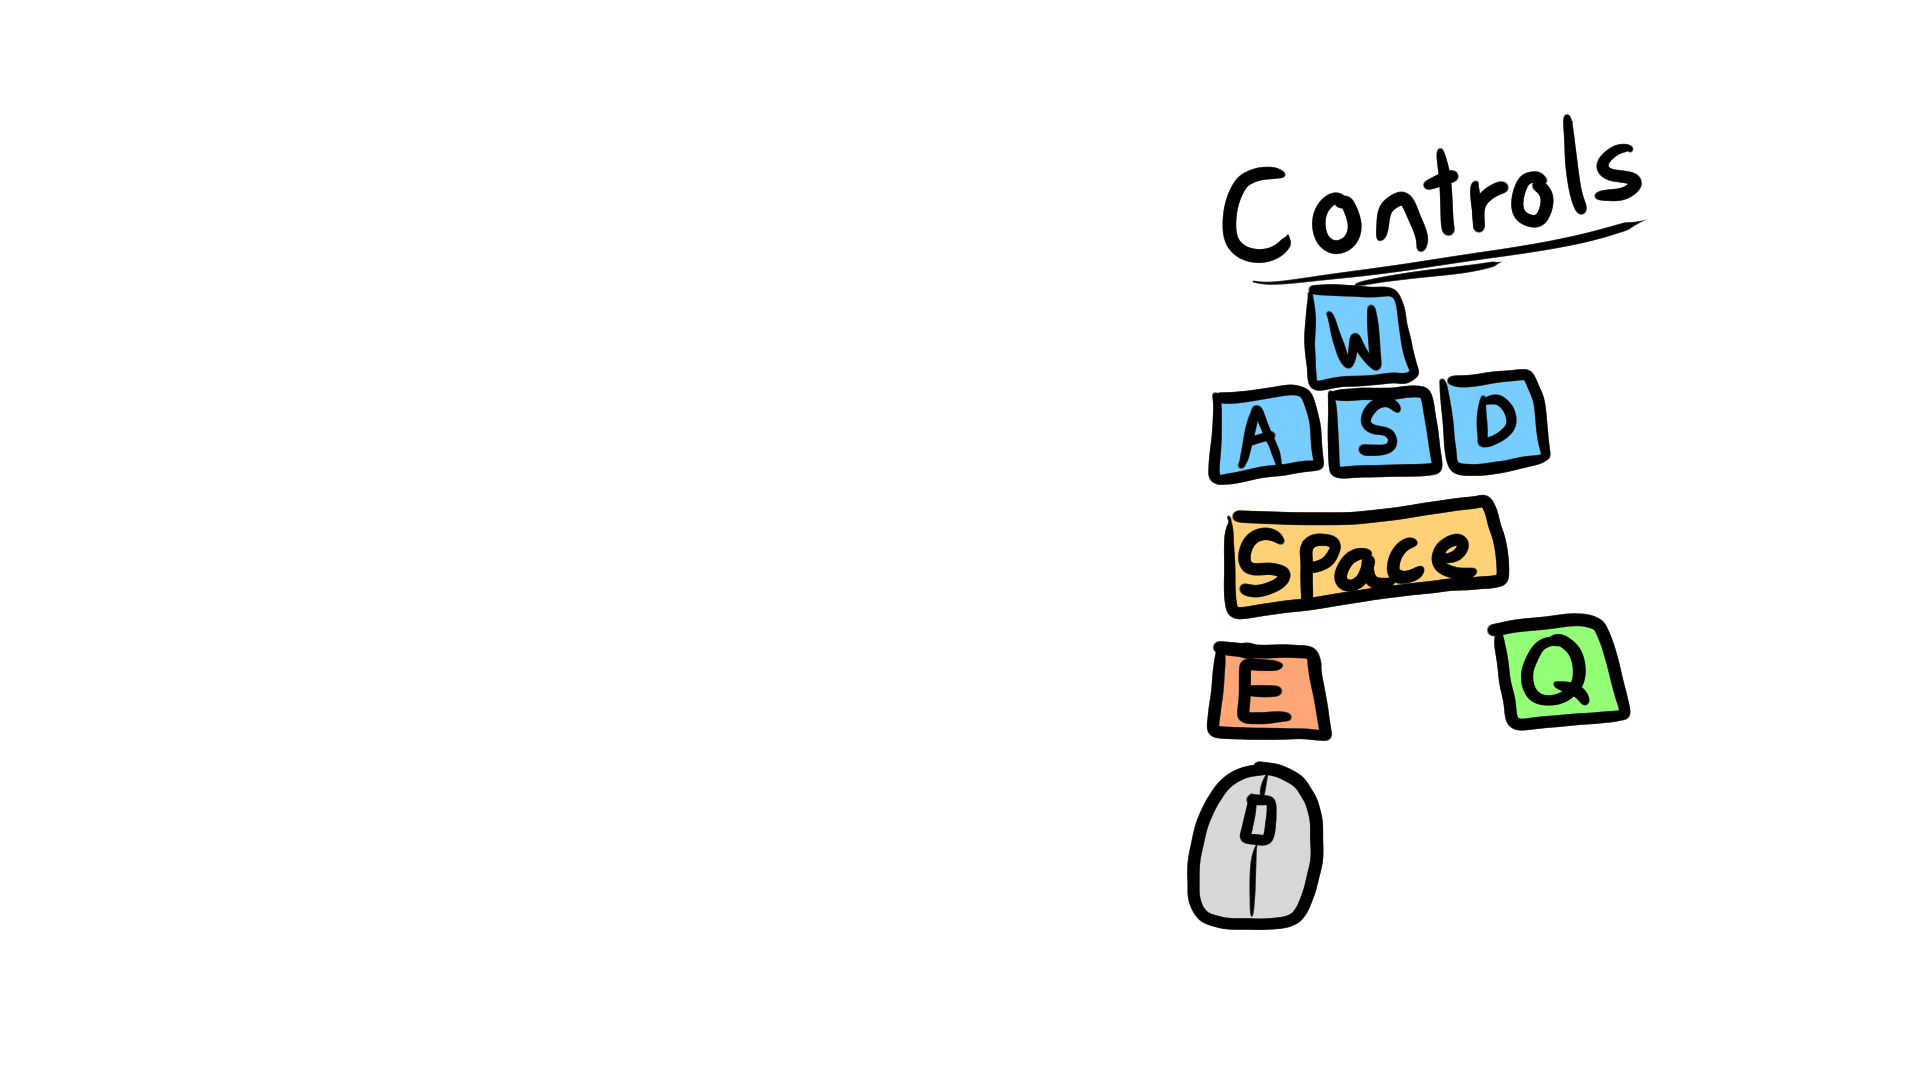 Controls
W
A S D
Space
E Q